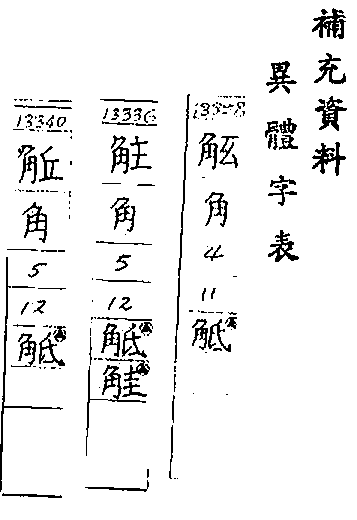 補充資料
異體字表
角
4
11
觝
13336
角
5
12
觝
觟
13340
角
5
12
觝